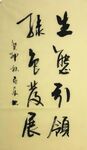 生態引領
綠色發展